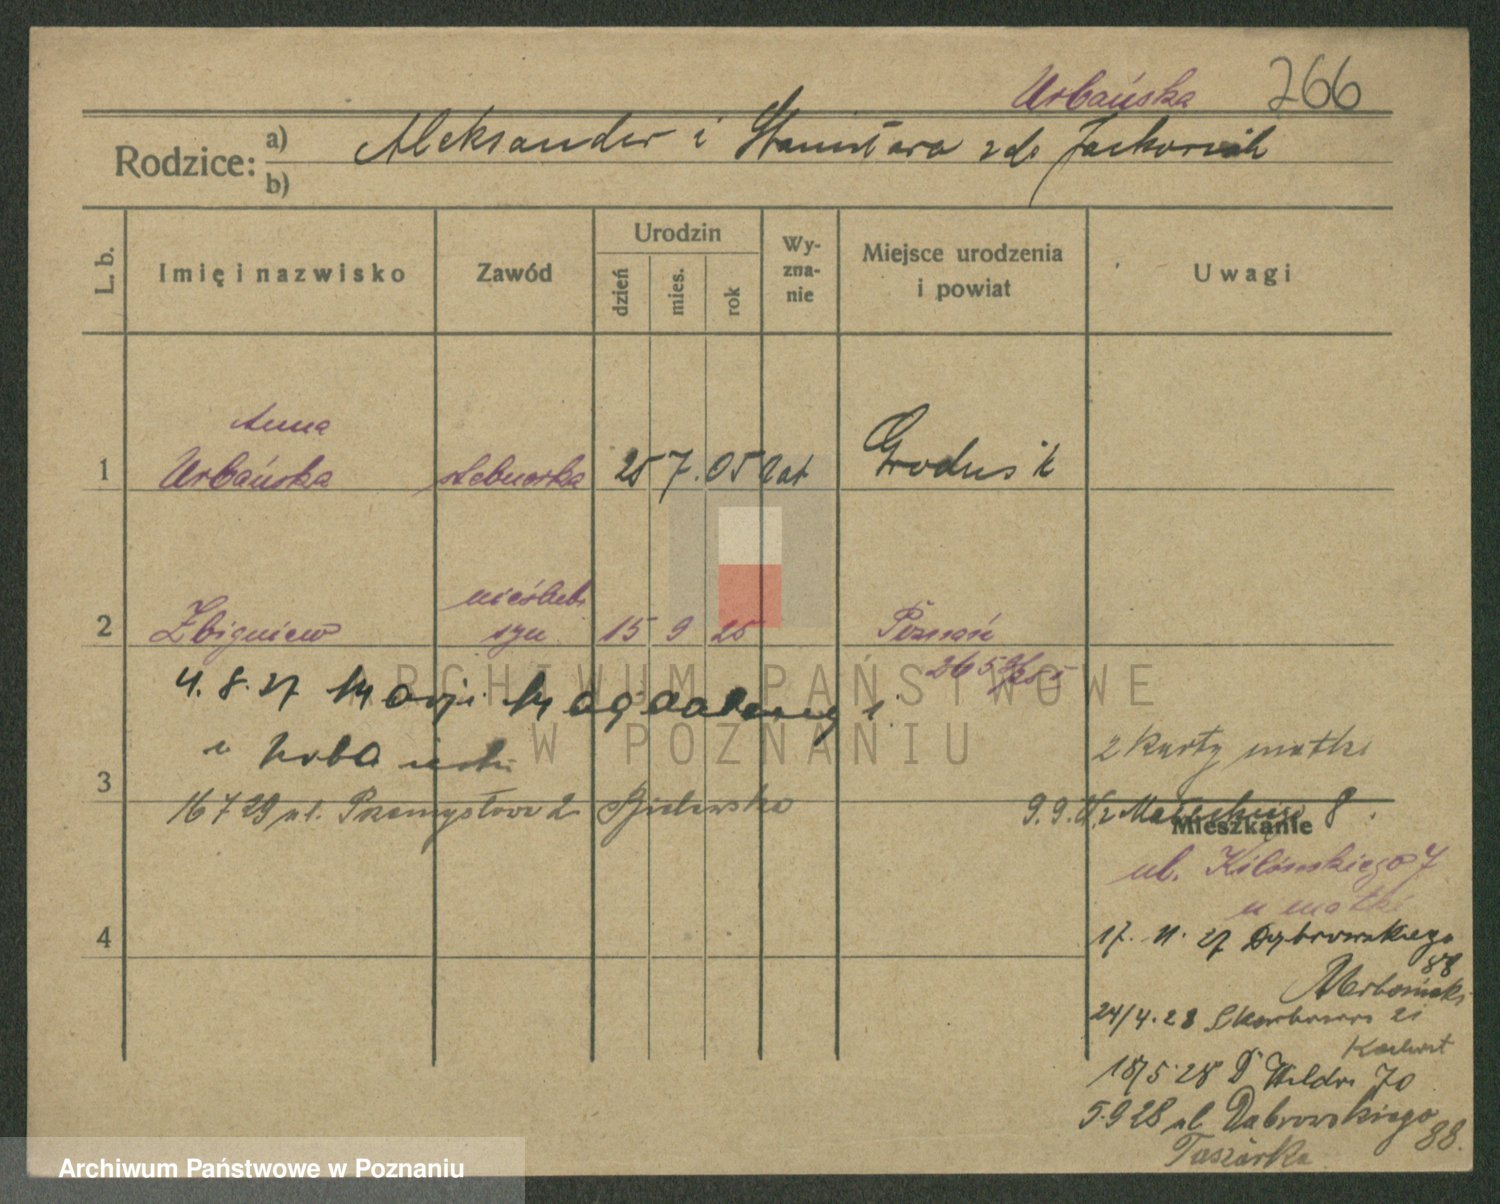 Urbańska 266
Rodzice: a) b)
Aleksander i Stanisława z d.
L. b.
Imię i nazwisko
Zawód
Urodzin
dzień
mies.
rok
Wy-
zna-
nie
Miejsce urodzenia
i powiat
Uwagi
Anna
1 Urbańska 25 7. 05 kat Grodzisk
nieślub.
2 Zbigniew syn 15 9 25 Poznań
4. 8. 27 Marji Magdaleny 1
u Urbański
2 karty matki
3
16 7 29 ul. Przemysłowa 2
9.9. 8.
Mieszkanie
ul. Kilińskiego 7
u matki
4
17. 11. 27 Dąbrowskiego
88
24/4. 28 21
18/5 28 D Wilda 70
5.9 28 ul Dąbrowskiego
88.
ARCHIWUM PAŃSTWOWE
W POZNANIU
Archiwum Państwowe w Poznaniu